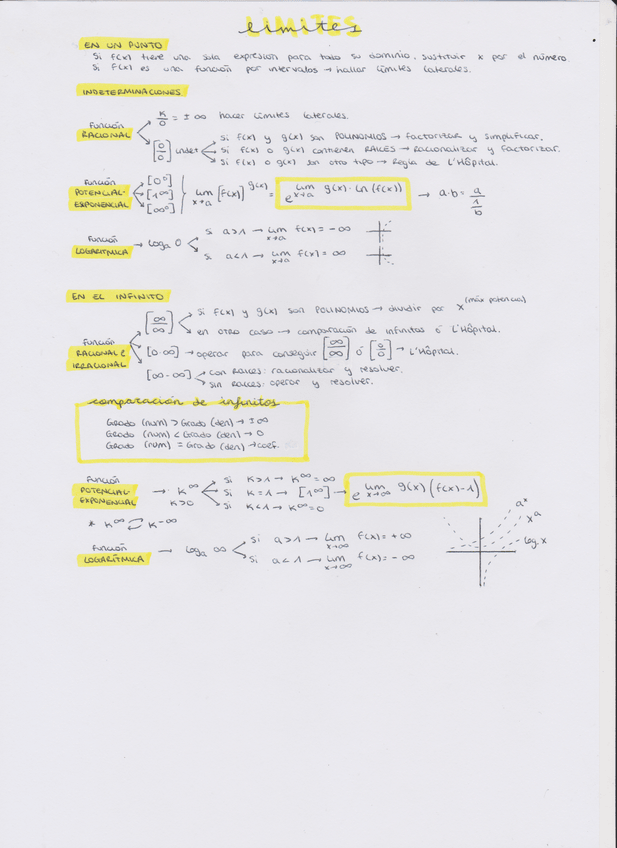 LIMITES
límites
EN UN PUNTO
Si f(x) tiene una sola expresión para todo su dominio, sustituir x por el número.
Si f(x) es una función por intervalos → hallar límites laterales.
INDETERMINACIONES
Función RACIONAL
K/0 = ±∞ hacer límites laterales.
[0/0] indet
Si f(x) y g(x) son POLINOMIOS → factorizar y simplificar.
Si f(x) o g(x) contienen RAÍCES → Racionalizar y factorizar.
Si f(x) o g(x) son otro tipo → Regla de L'Hôpital.
Función POTENCIAL-EXPONENCIAL
[0⁰]
[1^∞]
[∞⁰]
lim x→a [f(x)]^g(x) = e^lim x→a g(x)·ln(f(x)) → a·b = a/(1/b)
Función LOGARÍTMICA → loga 0
si a>1 → lim x→a f(x) = -∞
si a<1 → lim x→a f(x) = ∞
EN EL INFINITO
Función RACIONAL E IRRACIONAL
[∞/∞]
Si f(x) y g(x) son POLINOMIOS → dividir por x^(máx potencia)
en otro caso → comparación de infinitos ó L'Hôpital.
[0·∞] → operar para conseguir [∞/∞] ó [0/0] → L'Hôpital.
[∞-∞]
con RAÍCES: racionalizar y resolver.
sin RAÍCES: operar y resolver.
comparación de infinitos
Grado (num) > Grado (den) → ±∞
Grado (num) < Grado (den) → 0
Grado (num) = Grado (den) → coef.
Función POTENCIAL-EXPONENCIAL → K^∞
K>0
Si K>1 → K^∞ = ∞
Si K=1 → [1^∞] → e^lim x→∞ g(x)(f(x)-1)
Si K<1 → K^∞ = 0
* K^∞ K^-∞
a^x
x^a
log x
Función LOGARÍTMICA → loga ∞
Si a>1 → lim x→∞ f(x) = +∞
Si a<1 → lim x→∞ f(x) = -∞